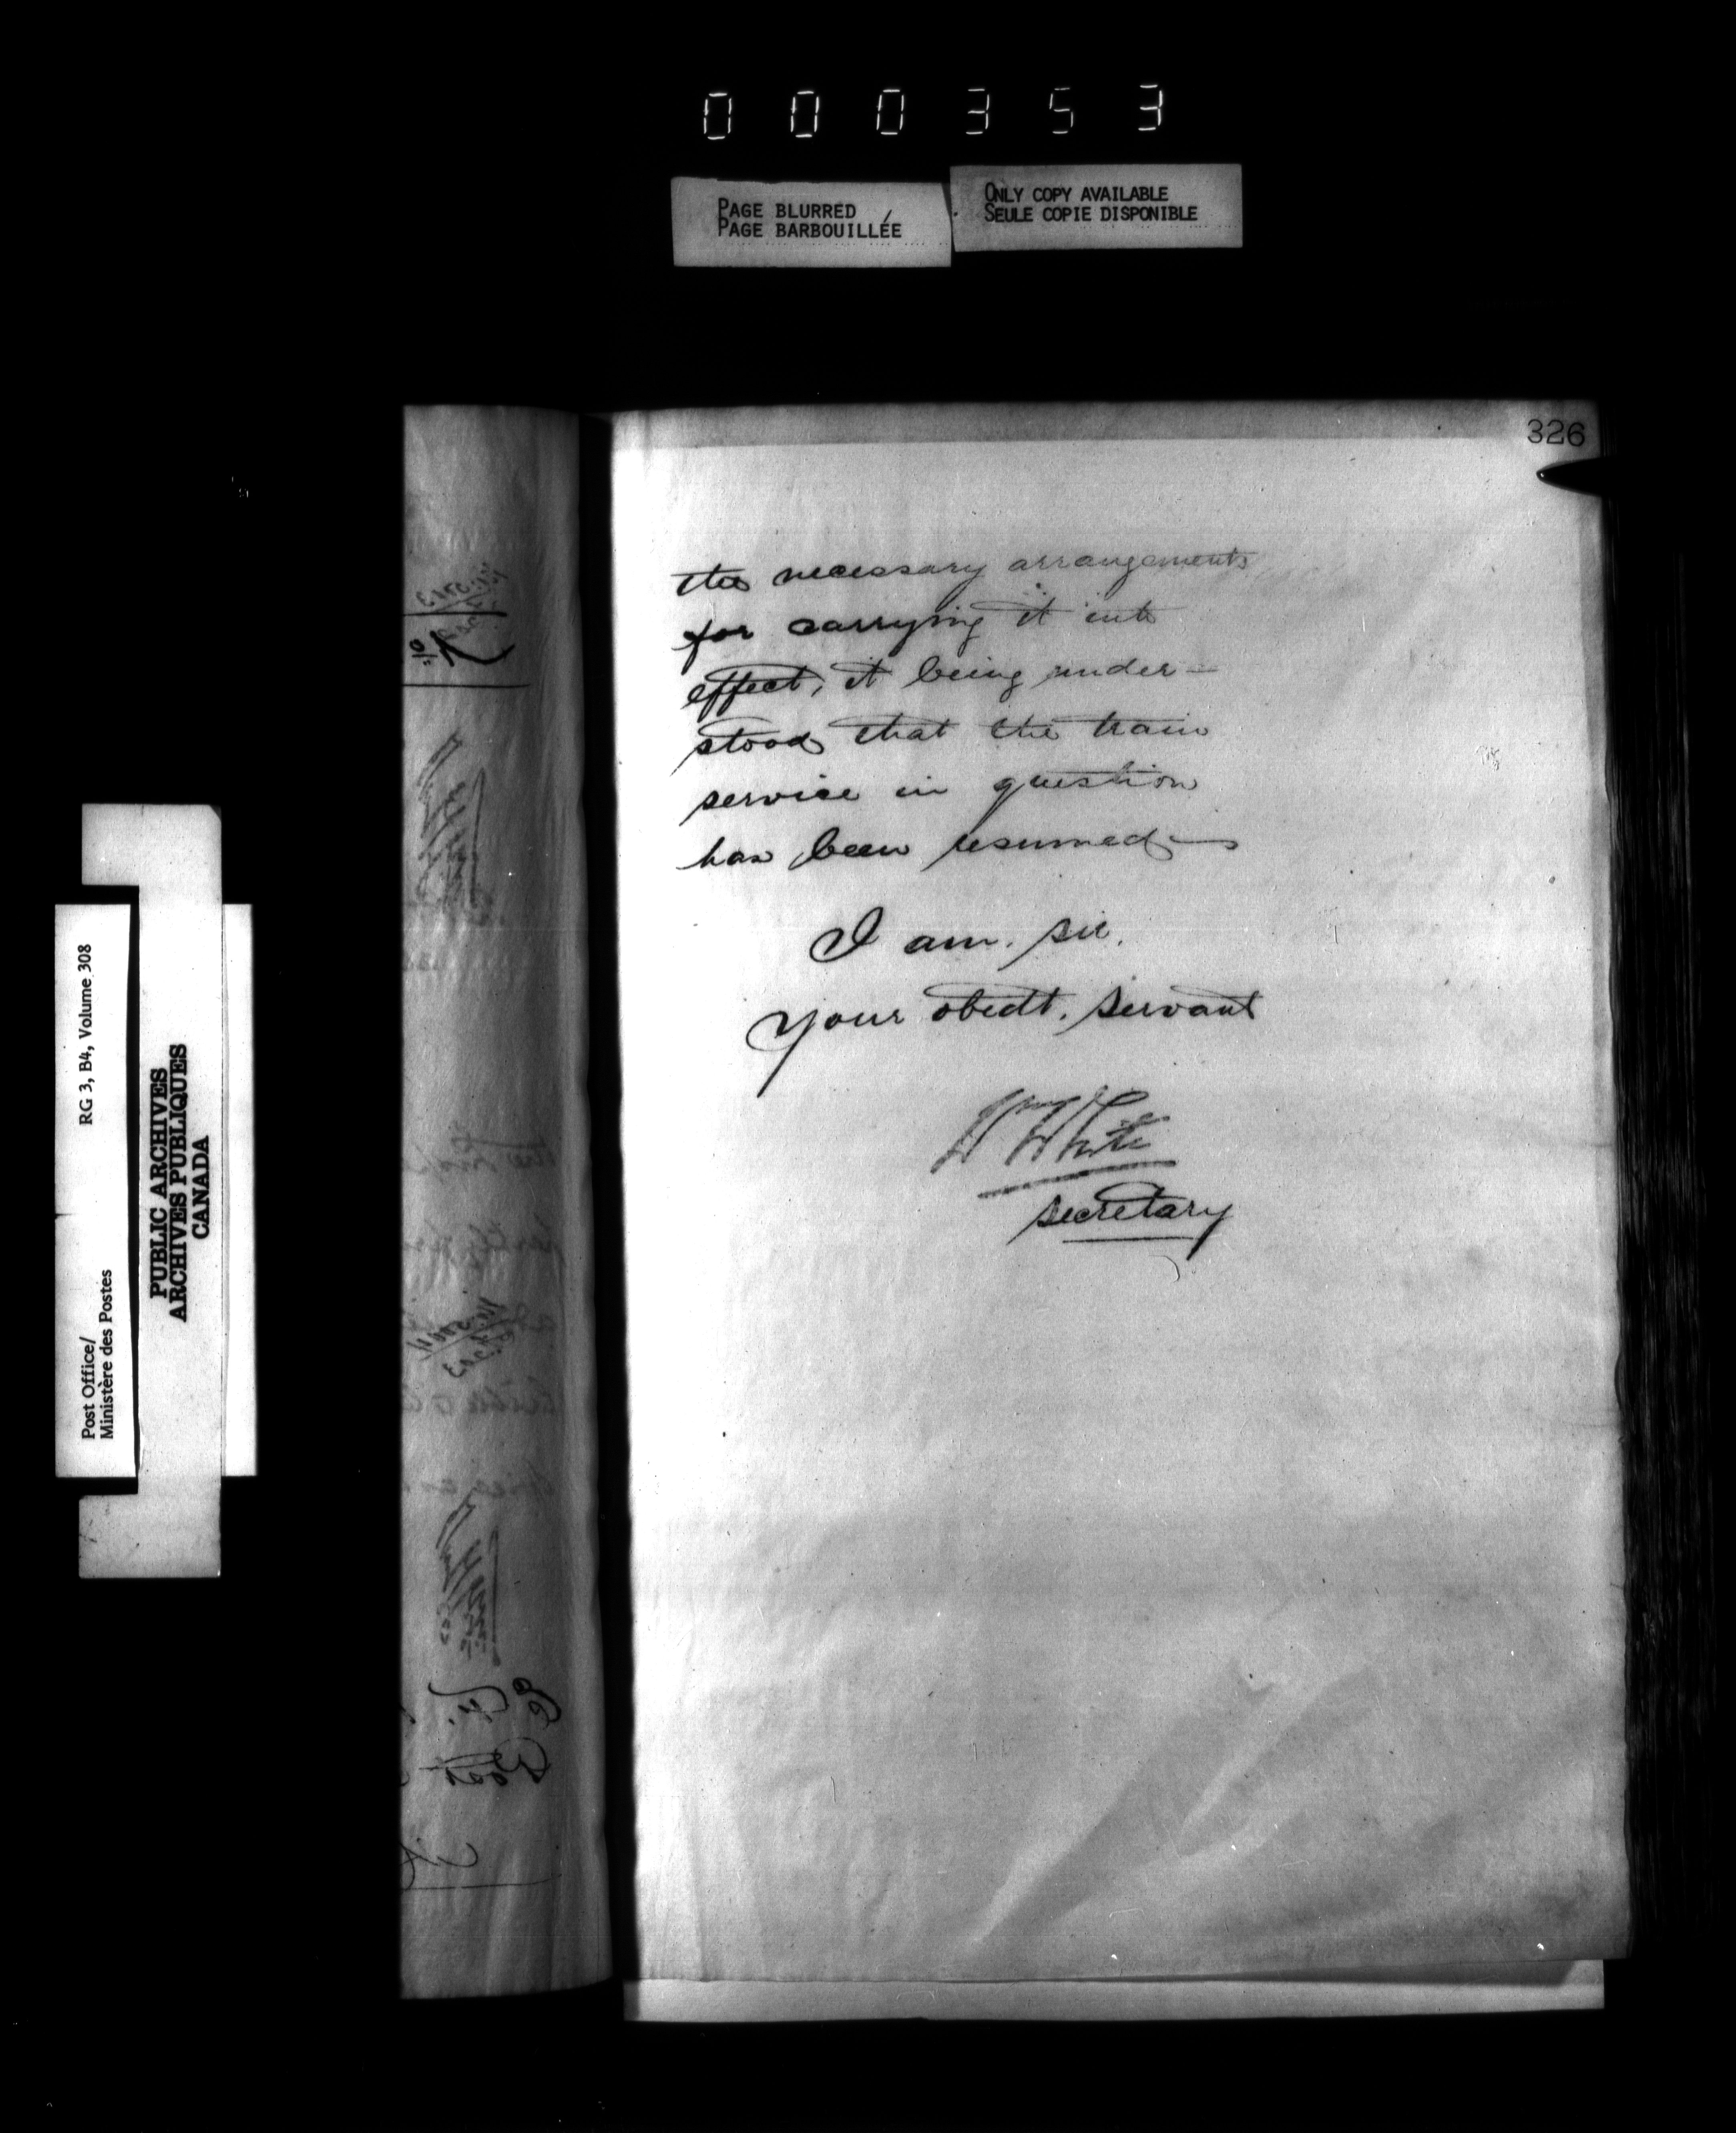 000353
PAGE BLURRED
PAGE BARBOUILLÉE
ONLY COPY AVAILABLE
SEULE COPIE DISPONIBLE
326
the necessary arrangements
for carrying it into
effect, it being under-
stood that the train
service in question
has been resumed
I am. sir,
Your obedt. servant
Wm White
secretary
RG 3, B4, Volume 308
Post Office/
Ministère des Postes
PUBLIC ARCHIVES
ARCHIVES PUBLIQUES
CANADA